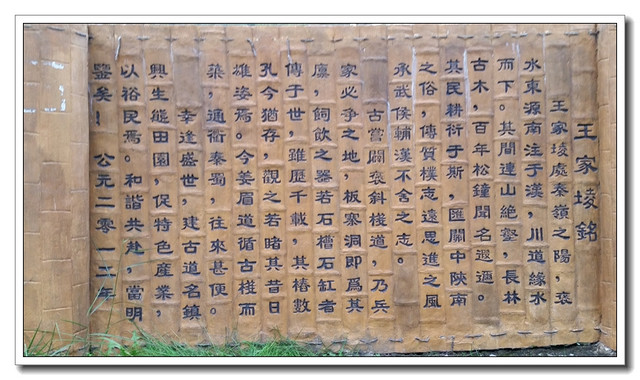 王家堎銘
王家堎處秦嶺之陽,褒
水東源南注于漢,川道緣水
而下。其間連山絶壑,長林
古木,百年松鐘聞名遐邇。
其民耕衍于斯,匯關中陝南
之俗,傳質樸志遠思進之風
承武侯輔漢不舍之志。
古嘗闢褒斜棧道,乃兵
家必争之地,板寨洞即爲其
廩,飼飲之器若石槽石缸者
傳于世,雖歷千載,其樁數
孔今猶存,觀之若睹其昔日
雄姿焉。今姜眉道循古棧而
築,通衢秦蜀,往來甚便。
幸逢盛世,建古道名鎮
興生態田園,促特色産業,
以裕民焉。和諧共赴,當明
鑒矣! 公元二零一二年